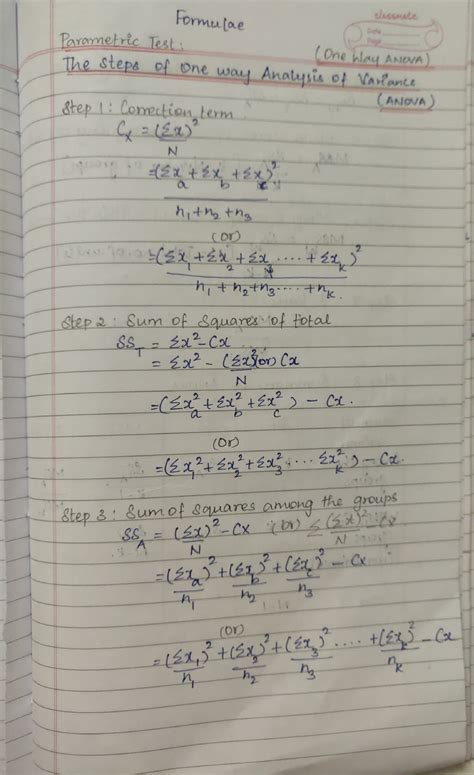 Formulae
classmate
Date
Page
Parametric Test:
(One Way ANOVA)
The steps of One way Analysis of Variance
(ANOVA)
Step 1: Correction term
Cx = (Σx)²/N
= (Σxa + Σxb + Σxc)²/n1+n2+n3
(or)
= (Σx1 + Σx2 + Σx3 .... + Σxk)²/n1 + n2 + n3 .... + nk.
Step 2: Sum of Squares of total
SST = Σx² - Cx
= Σx² - (Σx)²/N (or) Cx
= (Σxa² + Σxb² + Σxc²) - Cx.
(or)
= (Σx1² + Σx2² + Σx3² ... Σxk²) - Cx.
Step 3: Sum of squares among the groups
SSA = (Σx)²/N - Cx (or) Σ(Σx)²/N - Cx
= (Σxa)²/n1 + (Σxb)²/n2 + (Σxc)²/n3 - Cx
(or)
= (Σx1)²/n1 + (Σx2)²/n2 + (Σx3)²/n3 .... + (Σxk)²/nk - Cx